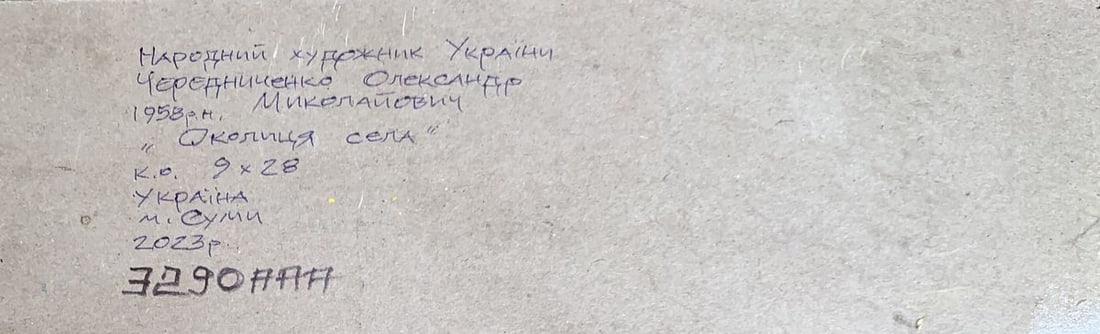 Народний художник України
Чередниченко Олександр
Миколайович
1958р.н.
„Околиця села"
к.о. 9x28
Україна
м. Суми
2023р.
3290ААА